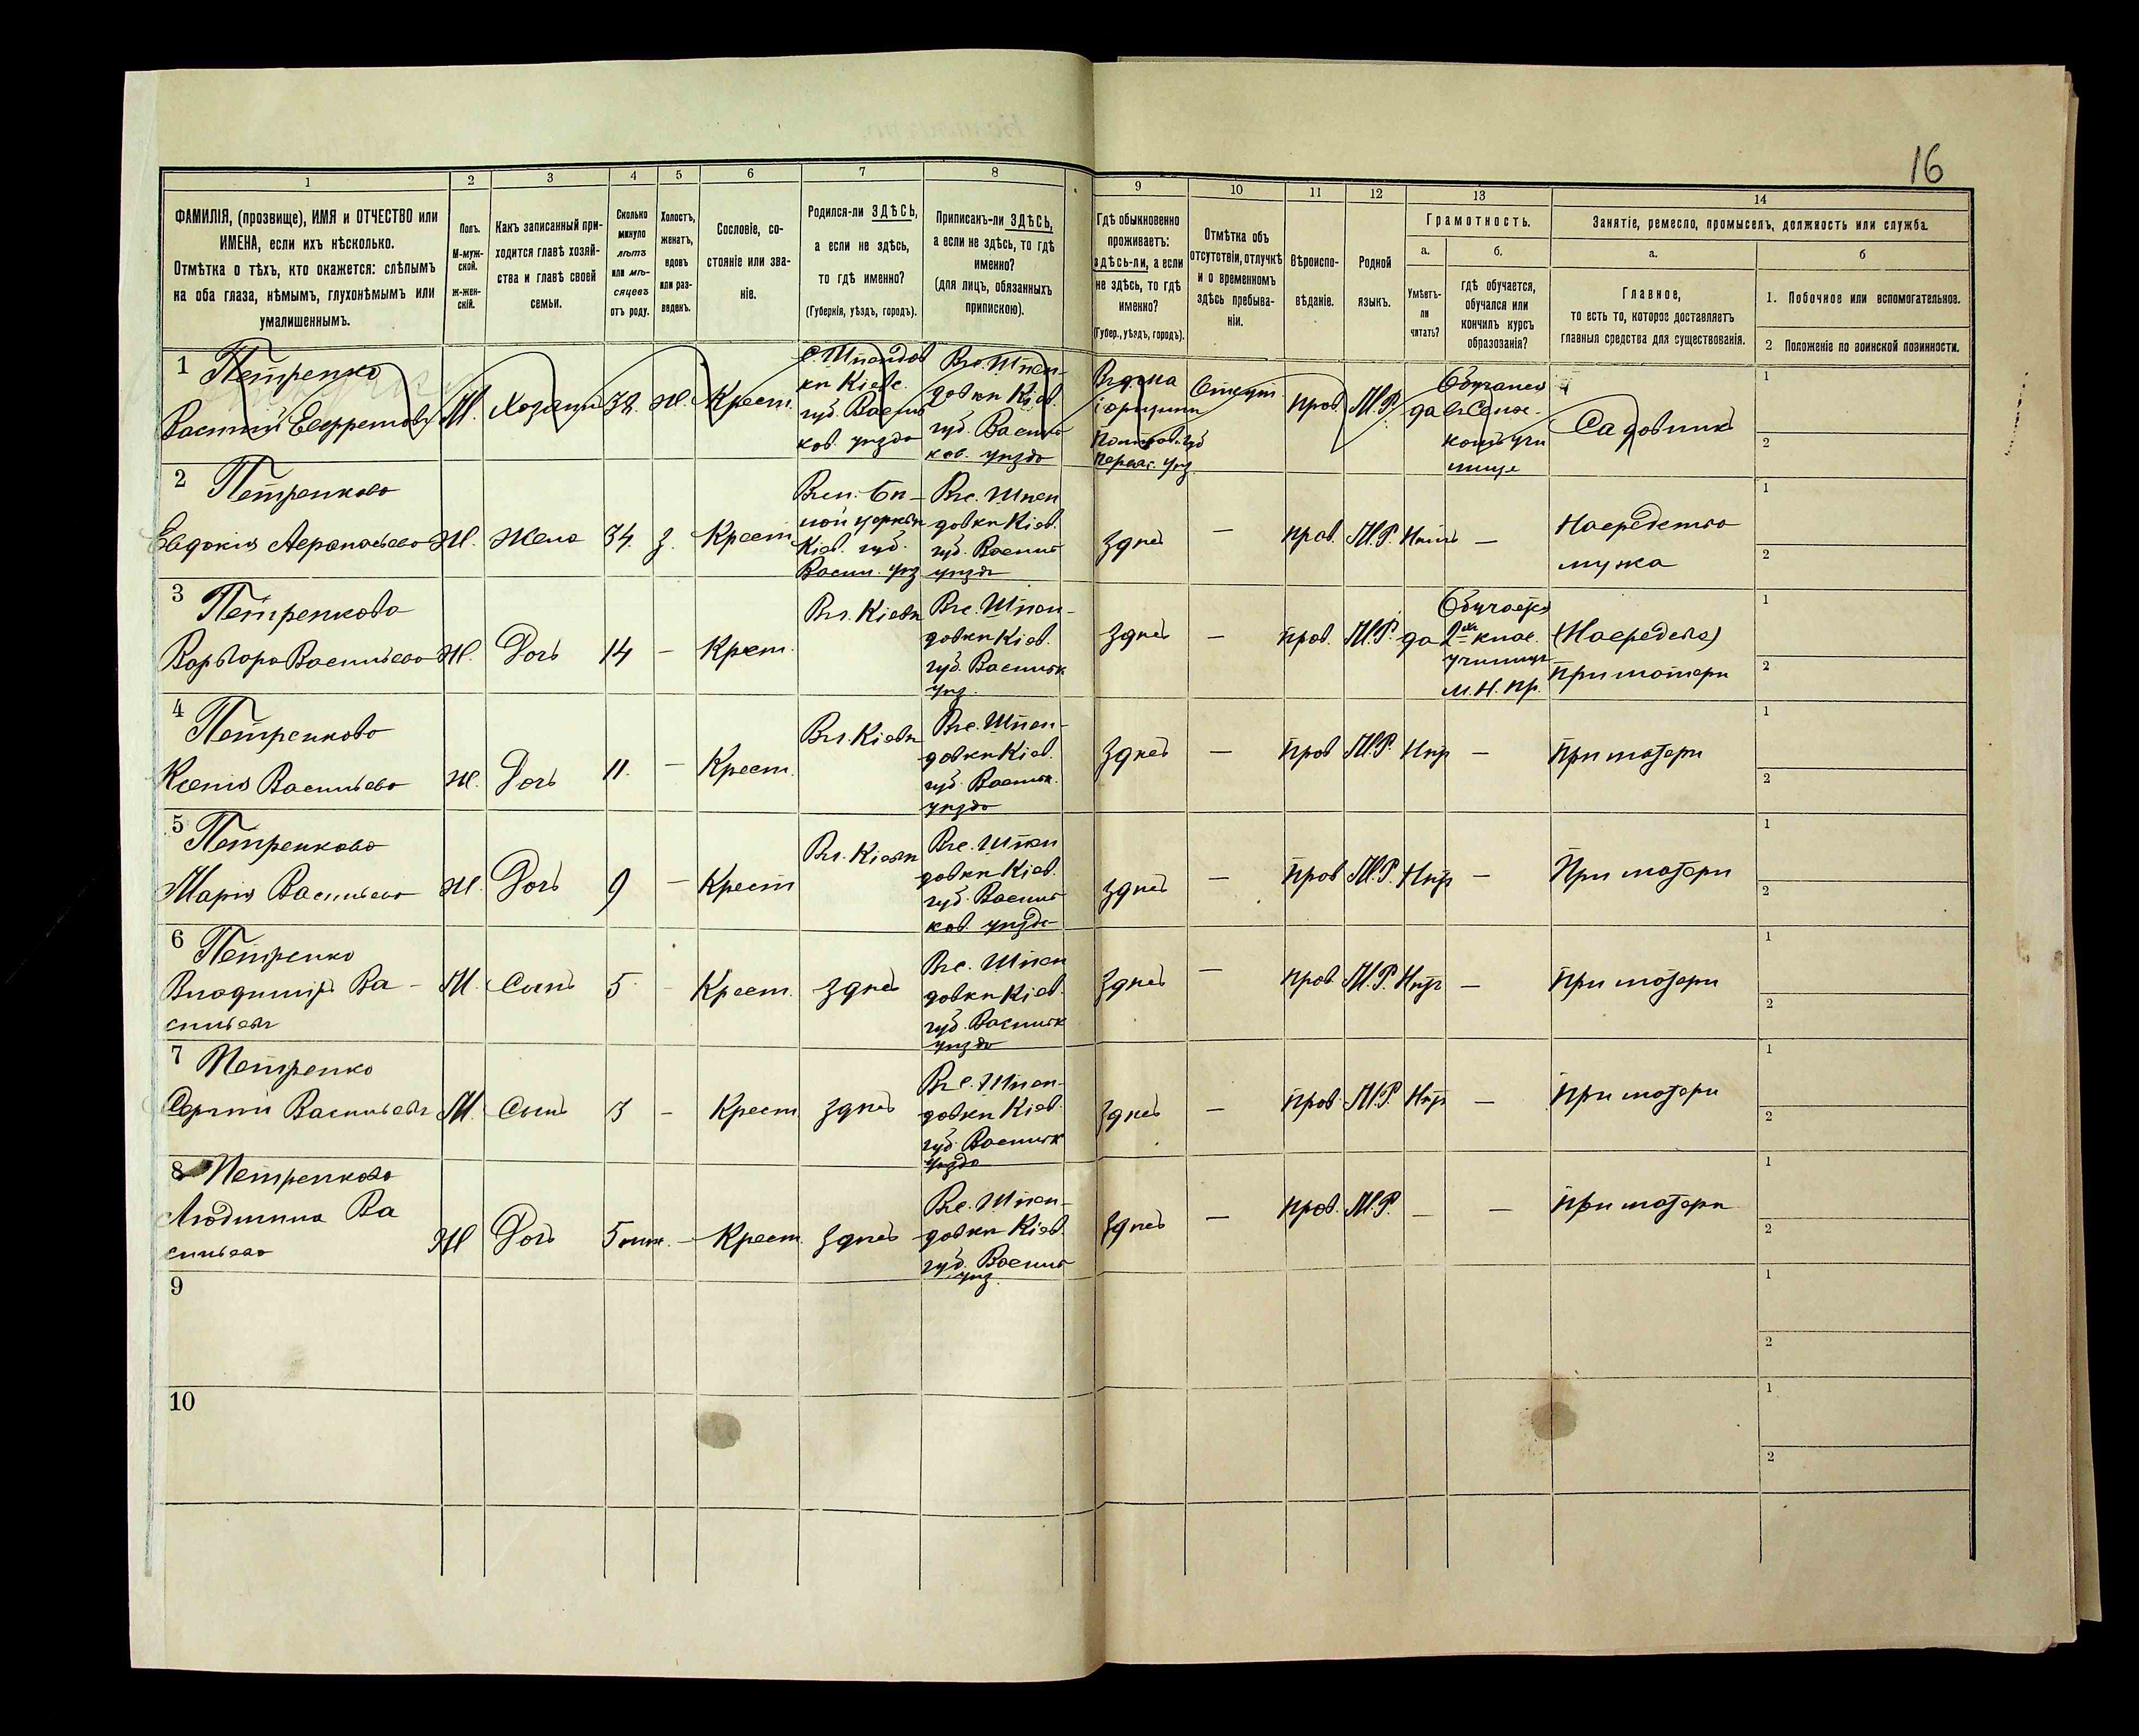 16
1
2
3
4
5
6
7
8
9
10
11
12
13
14
ФАМИЛІЯ, (прозвище), ИМЯ и ОТЧЕСТВО или
ИМЕНА, если ихъ нѣсколько.
Отмѣтка о тѣхъ, кто окажется: слѣпымъ
на оба глаза, нѣмымъ, глухонѣмымъ или
умалишеннымъ.
Полъ.
М-муж-
ской.
ж-жен-
скій.
Какъ записанный при-
ходится главѣ хозяй-
ства и главѣ своей
семьи.
Сколько
минуло
лѣтъ
или мѣ-
сяцевъ
отъ роду.
Холостъ,
женатъ,
вдовъ
или раз-
веденъ.
Сословіе, со-
стояніе или зва-
ніе.
Родился-ли ЗДѢСЬ,
а если не здѣсь,
то гдѣ именно?
(Губернія, уѣздъ, городъ).
Приписанъ-ли ЗДѢСЬ,
а если не здѣсь, то гдѣ
именно?
(для лицъ, обязанныхъ
припискою).
Гдѣ обыкновенно
проживаетъ:
здѣсь-ли, а если
не здѣсь, то гдѣ
именно?
(Губер., уѣздъ, городъ).
Отмѣтка объ
отсутствіи, отлучкѣ
и о временномъ
здѣсь пребыва-
ніи.
Вѣроиспо-
вѣданіе.
Родной
языкъ.
Грамотность.
а.
Умѣетъ-
ли
читать?
б.
гдѣ обучается,
обучался или
кончилъ курсъ
образованія?
Занятіе, ремесло, промыселъ, должность или служба.
а.
Главное,
то есть то, которое доставляетъ
главныя средства для существованія.
б
1. Побочное или вспомогательное.
2 Положеніе по воинской повинности.
1 Петренко
Василій М. Хозяинъ 38. Ж. Крест.
с. Шпендов
ки Кіевс.
губ. Васильков. уѣзда
Въ с. Шпен-
довки Кіев.
губ. Васильков. уѣзда
Отсут. прав. М.Р. да
Садовникъ
1
2
2 Петренкова
Евдокія Ж. Жена 34. з. Крест.
Кіев. губ.
Васил. уѣз
Въ с. Шпен
довки Кіев.
губ. Василь
уѣзда
здѣсь — прав. М.Р. Нѣтъ —
На средства
мужа
1
2
3 Петренкова
Варвара Васильева Ж. Дочь 14 — Крест.
Въ г. Кіевѣ
Въ с. Шпен-
довки Кіев.
губ. Васильк
уѣз.
здѣсь — прав. М.Р. да
Обучается
2хъ клас.
училище
м. н. пр.
(На средства)
при матери
1
2
4 Петренкова
Ксенія Васильева Ж. Дочь 11. — Крест.
Въ г. Кіевѣ
Въ с. Шпен-
довки Кіев.
губ. Васильк.
уѣзда
здѣсь — прав М.Р. —
при матери
1
2
5 Петренкова
Марія Васильева Ж. Дочь 9 — Крест
Въ г. Кіевѣ
Въ с. Шпен
довки Кіев.
губ. Василь
ков. уѣзда
здѣсь — прав М.Р. —
При матери
1
2
6 Петренко
Владиміръ Ва-
сильевъ
М. Сынъ 5 - Крест. здѣсь
Въ с. Шпен
довки Кіев.
губ. Васильк
уѣзда
здѣсь — прав М.Р. —
при матери
1
2
7 Петренко
Сергій Васильевъ М. Сынъ 3 - Крест. здѣсь
Въ с. Шпен-
довки Кіев.
губ. Васильк
уѣзда
здѣсь — прав. М.Р. —
при матери
1
2
8 Петренкова
Людмила Ва
сильева
Ж Дочь 5 — Крест. здѣсь
Въ с. Шпен-
довки Кіев.
губ. Василь
уѣз.
здѣсь — прав. М.Р. — —
при матери
1
2
9
1
2
10
1
2